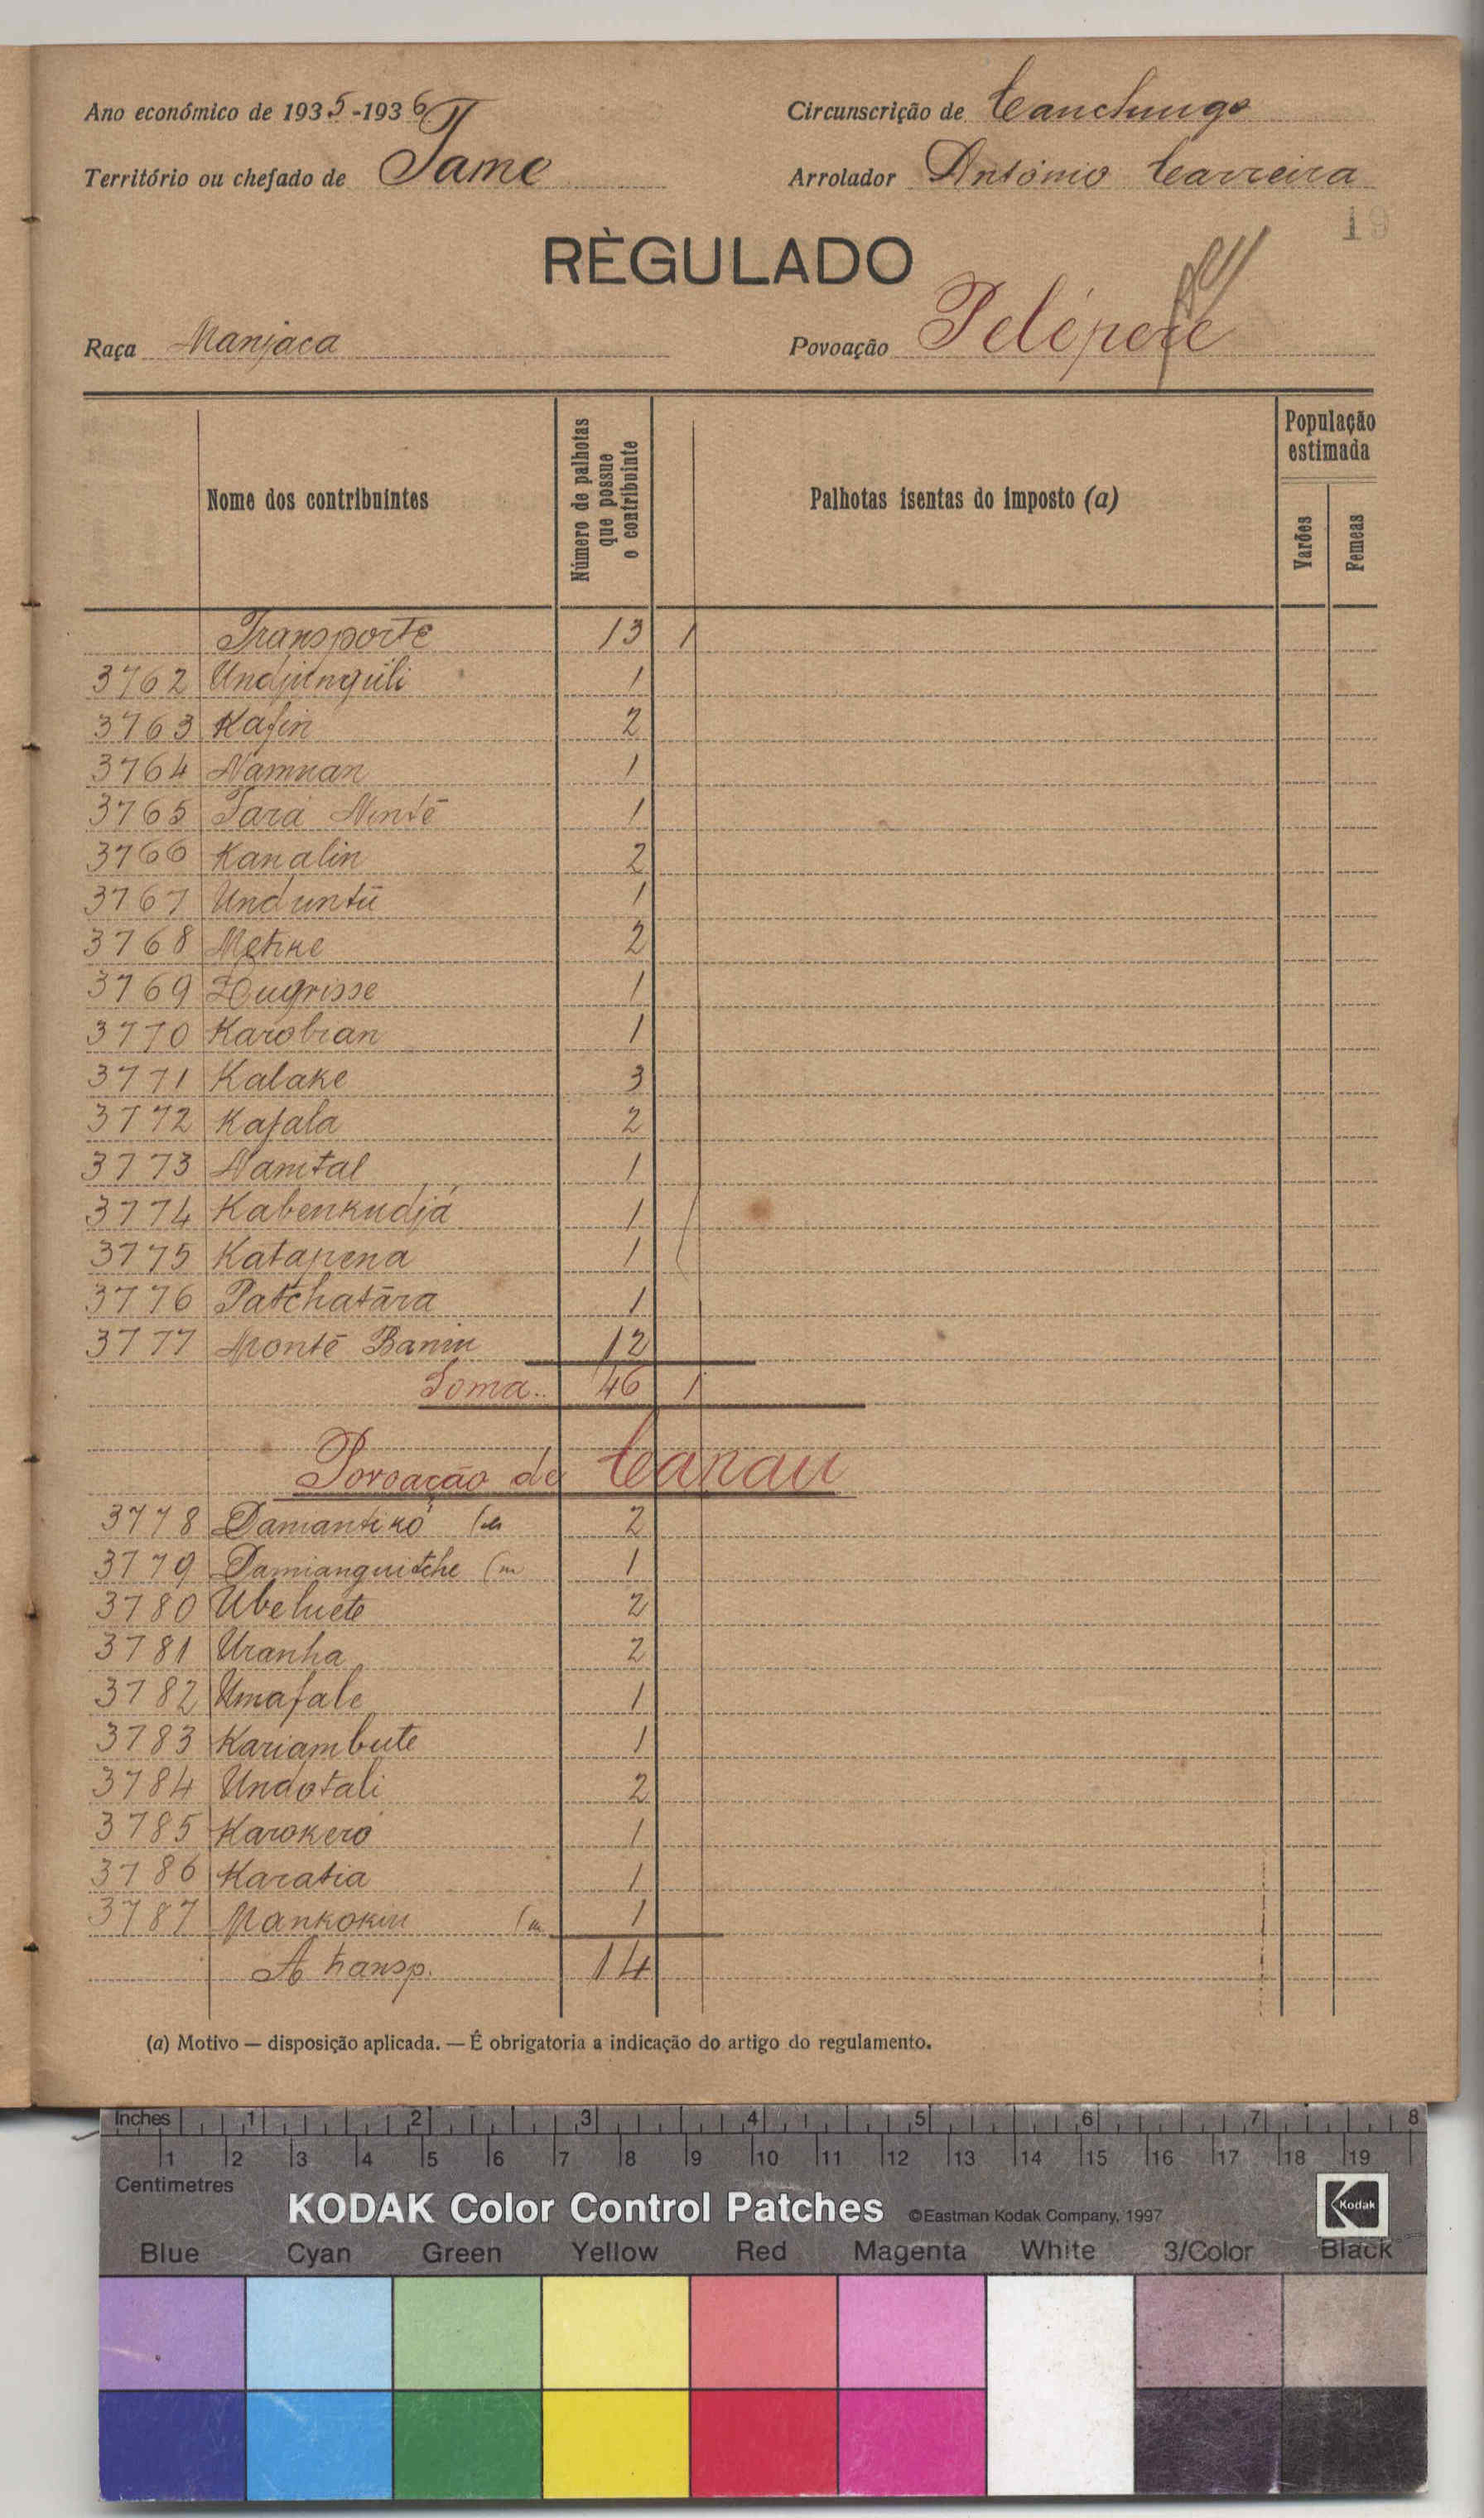 Ano económico de 1935-1936
Circunscrição de Canchungo
Território ou chefado de Tame
Arrolador António Carreira
19
RÈGULADO
Raça Manjaca
Povoação Pelépere
Nome dos contribuintes
Número de palhotas que possue o contribuinte
Palhotas isentas do imposto (a)
População estimada
Varões
Femeas
Transporte 13 1
3762 Undjunguli 1
3763 Kafin 2
3764 Namuan 1
3765 Tará Nunté 1
3766 Kanalin 2
3767 Unduntú 1
3768 Metike 2
3769 Dugrisse 1
3770 Karobian 1
3771 Kalake 3
3772 Kafala 2
3773 Namtal 1
3774 Kabenkudjá 1
3775 Katapena 1
3776 Patchatára 1
3777 Monté Banin 12
Soma.. 46 1
Povoação de Carau
3778 Damantikó 2
3779 Damianguitche (m 1
3780 Ubeluete 2
3781 Uranha 2
3782 Umafale 1
3783 Kariambute 1
3784 Undotali 2
3785 Karokeró 1
3786 Karatia 1
3787 Mankokin (m 1
A transp. 14
(a) Motivo — disposição aplicada. — É obrigatoria a indicação do artigo do regulamento.
Inches 1 2 3 4 5 6 7 8
1 2 3 4 5 6 7 8 9 10 11 12 13 14 15 16 17 18 19
Centimetres
KODAK Color Control Patches ©Eastman Kodak Company, 1997 Kodak
Blue Cyan Green Yellow Red Magenta White 3/Color Black